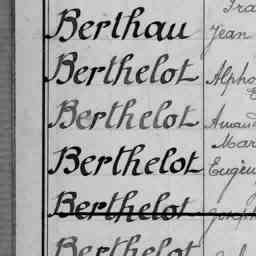 Berthau Jean
Berthelot Alpho
Berthelot Amand
Mar
Berthelot Eugèn
Berthelot Joseph
Berthelot